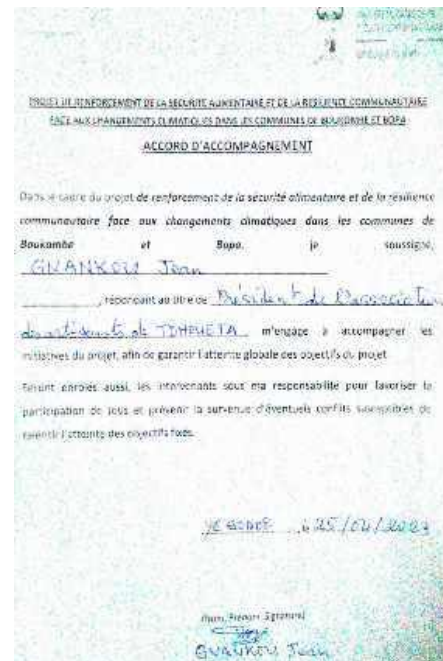 PROJET DE RENFORCEMENT DE LA SECURITE ALIMENTAIRE ET DE LA RESILIENCE COMMUNAUTAIRE
FACE AUX CHANGEMENTS CLIMATIQUES DANS LES COMMUNES DE BOUKOMBE ET BOPA
ACCORD D'ACCOMPAGNEMENT
Dans le cadre du projet de renforcement de la sécurité alimentaire et de la resilience
communautaire face aux changements climatiques dans les communes de
Boukombe et Bopa, je soussigné,
GNANKOU Jean
, répondant au titre de Président de l'association
de TDHPUETA m'engage à accompagner les
initiatives du projet, afin de garantir l'atteinte globale des objectifs du projet
Seront enrôlés aussi, les intervenants sous ma responsabilité pour favoriser la
participation de tous et prévenir la survenue d'éventuels conflits susceptibles de
ralentir l'atteinte des objectifs fixés.
25/04/2023
(Nom, Prénom, Signature)
GNANKOU Jean